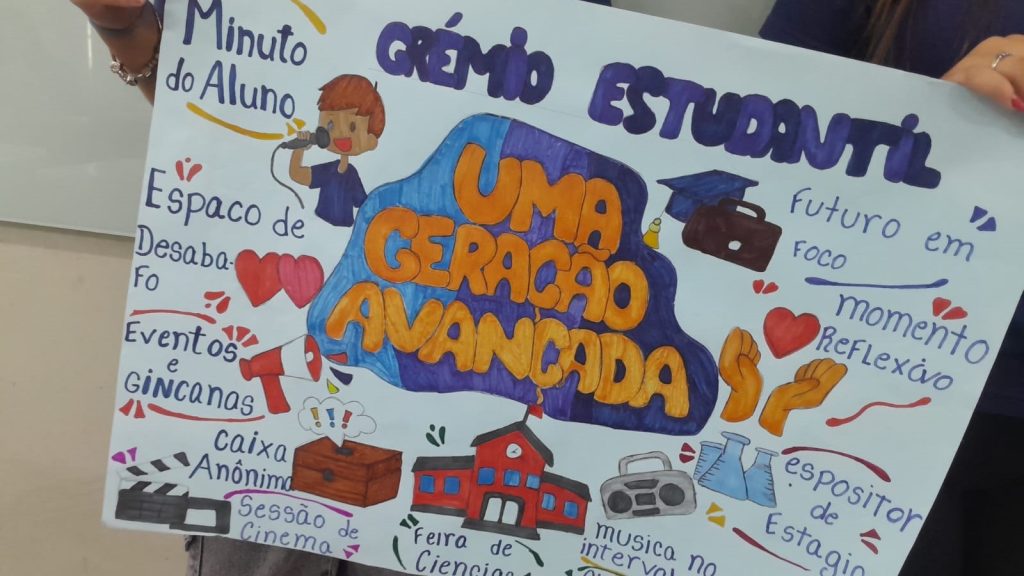 Minuto
do Aluno
GRÉMIO ESTUDANTIL
UMA
GERAÇÃO
AVANÇADA
Espaco de
Desaba-
Fo
Eventos
e
GiNCANAS
CAIXA
Anônima
Sessão de
Cinema
Feira de
Ciencias
musica no
Futuro em
Foco
momento
Reflexivo
espositor
de
Estagio